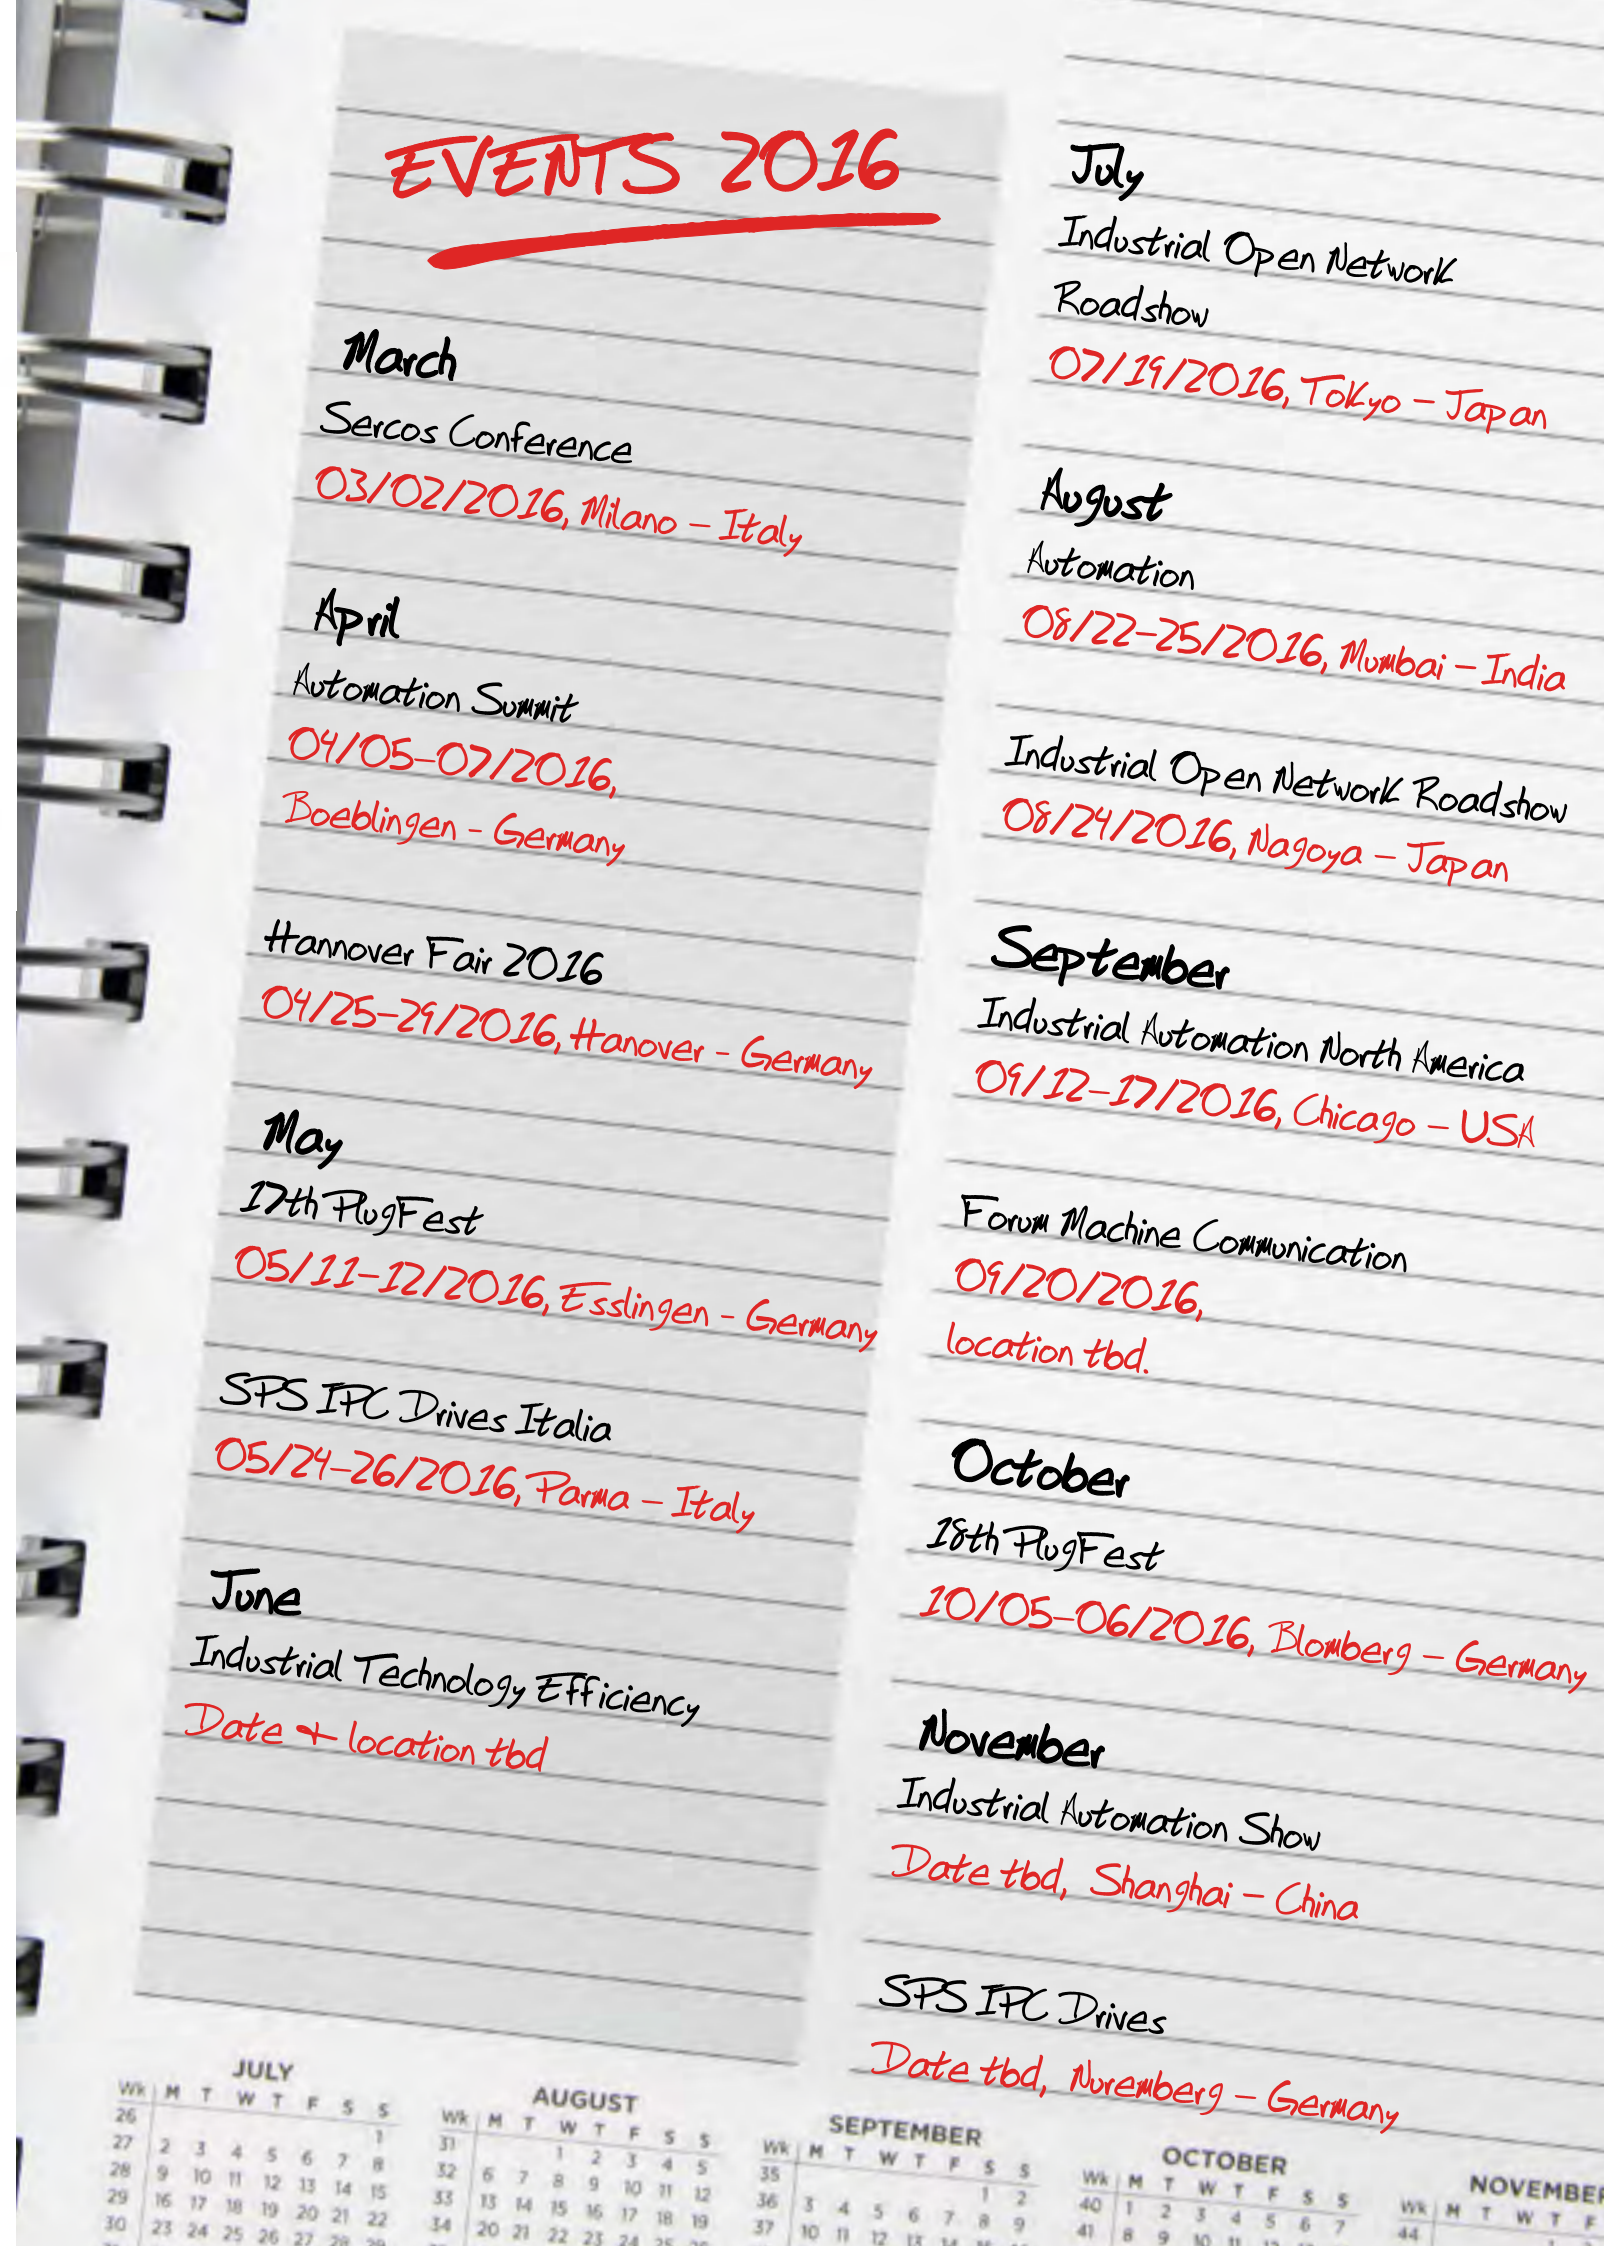 EVENTS 2016
March
Sercos Conference
03/02/2016, Milano – Italy
April
Automation Summit
04/05–07/2016,
Boeblingen - Germany
Hannover Fair 2016
04/25–29/2016, Hanover - Germany
May
17th PlugFest
05/11–12/2016, Esslingen - Germany
SPS IPC Drives Italia
05/24–26/2016, Parma – Italy
June
Industrial Technology Efficiency
Date + location tbd
July
Industrial Open Network
Roadshow
07/19/2016, Tokyo – Japan
August
Automation
08/22–25/2016, Mumbai – India
Industrial Open Network Roadshow
08/24/2016, Nagoya – Japan
September
Industrial Automation North America
09/12–17/2016, Chicago – USA
Forum Machine Communication
09/20/2016,
location tbd.
October
18th PlugFest
10/05–06/2016, Blomberg – Germany
November
Industrial Automation Show
Date tbd, Shanghai – China
SPS IPC Drives
Date tbd, Nuremberg – Germany
JULY
Wk M T W T F S S
26 1
27 2 3 4 5 6 7 8
28 9 10 11 12 13 14 15
29 16 17 18 19 20 21 22
30 23 24 25 26 27 28 29
AUGUST
Wk M T W T F S S
31 1 2 3 4 5
32 6 7 8 9 10 11 12
33 13 14 15 16 17 18 19
34 20 21 22 23 24 25 26
SEPTEMBER
Wk M T W T F S S
35 1 2
36 3 4 5 6 7 8 9
37 10 11 12 13 14 15 16
OCTOBER
Wk M T W T F S S
40 1 2 3 4 5 6 7
41 8 9 10 11 12 13
NOVEMBER
Wk M T W T F
44